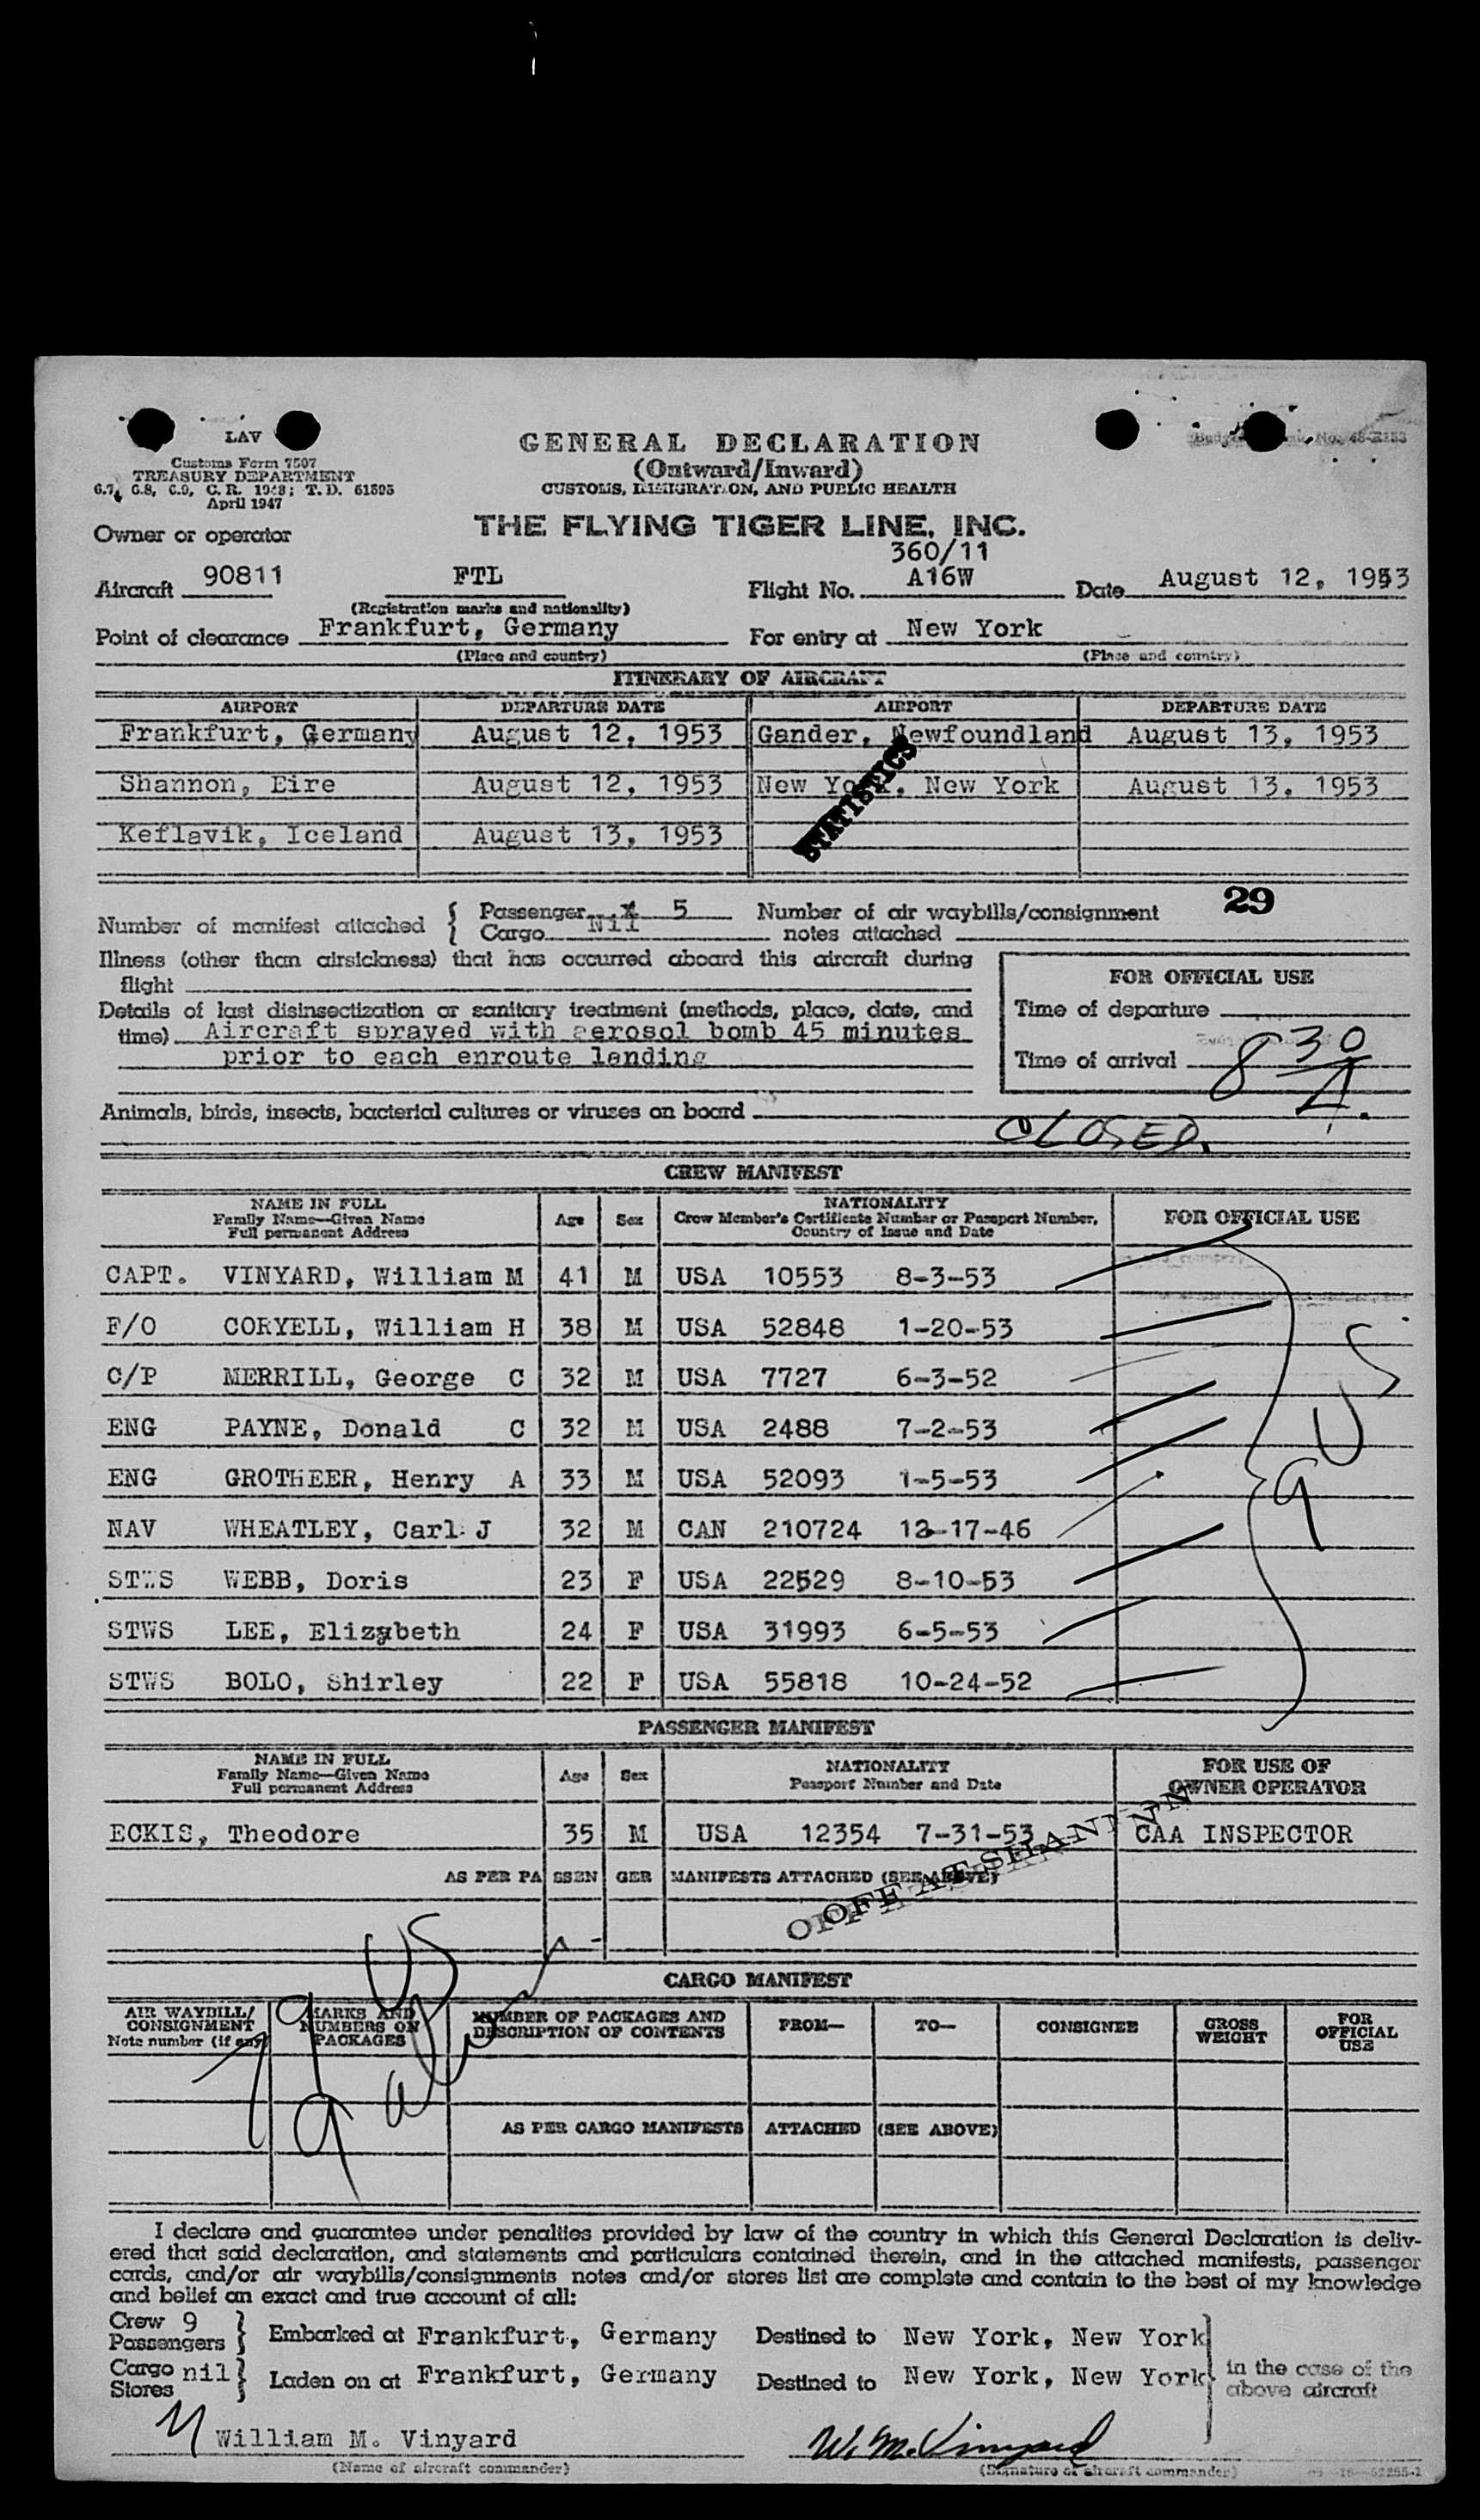 LAV
Customs Form 7507
TREASURY DEPARTMENT
6.7, 6.8, 6.9, C. R. 1943; T. D. 51595
April 1947
GENERAL DECLARATION
(Outward/Inward)
CUSTOMS, IMMIGRATION, AND PUBLIC HEALTH
THE FLYING TIGER LINE, INC.
Owner or operator
360/11
Aircraft 90811 FTL Flight No. A16W Date August 12, 1953
(Registration marks and nationality)
Point of clearance Frankfurt, Germany For entry at New York
(Place and country) (Place and country)
ITINERARY OF AIRCRAFT
AIRPORT DEPARTURE DATE AIRPORT DEPARTURE DATE
Frankfurt, Germany August 12, 1953 Gander, Newfoundland August 13, 1953
Shannon, Eire August 12, 1953 New York, New York August 13, 1953
Keflavik, Iceland August 13, 1953
STATISTICS
29
Number of manifest attached { Passenger 5 Number of air waybills/consignment
Cargo Nil notes attached
Illness (other than airsickness) that has occurred aboard this aircraft during
flight
FOR OFFICIAL USE
Details of last disinsectization or sanitary treatment (methods, place, date, and
time) Aircraft sprayed with aerosol bomb 45 minutes
prior to each enroute landing
Time of departure
Time of arrival 8 30 A.
Animals, birds, insects, bacterial cultures or viruses on board
CLOSED.
CREW MANIFEST
NAME IN FULL
Family Name—Given Name
Full permanent Address
Age Sex
NATIONALITY
Crew Member's Certificate Number or Passport Number,
Country of Issue and Date
FOR OFFICIAL USE
CAPT. VINYARD, William M 41 M USA 10553 8-3-53
F/O CORYELL, William H 38 M USA 52848 1-20-53
C/P MERRILL, George C 32 M USA 7727 6-3-52
ENG PAYNE, Donald C 32 M USA 2488 7-2-53
ENG GROTHEER, Henry A 33 M USA 52093 1-5-53
NAV WHEATLEY, Carl J 32 M CAN 210724 12-17-46
STWS WEBB, Doris 23 F USA 22529 8-10-53
STWS LEE, Elizabeth 24 F USA 31993 6-5-53
STWS BOLO, Shirley 22 F USA 55818 10-24-52
9 US
PASSENGER MANIFEST
NAME IN FULL
Family Name—Given Name
Full permanent Address
Age Sex
NATIONALITY
Passport Number and Date
FOR USE OF
OWNER OPERATOR
ECKIS, Theodore 35 M USA 12354 7-31-53 CAA INSPECTOR
AS PER PASSENGER MANIFESTS ATTACHED (SEE ABOVE)
OFF AT SHANNON
US
9
CARGO MANIFEST
AIR WAYBILL/
CONSIGNMENT
Note number (if any)
MARKS AND
NUMBERS ON
PACKAGES
NUMBER OF PACKAGES AND
DESCRIPTION OF CONTENTS
FROM— TO— CONSIGNEE
GROSS
WEIGHT
FOR
OFFICIAL
USE
AS PER CARGO MANIFESTS ATTACHED (SEE ABOVE)
I declare and guarantee under penalties provided by law of the country in which this General Declaration is deliv-
ered that said declaration, and statements and particulars contained therein, and in the attached manifests, passenger
cards, and/or air waybills/consignments notes and/or stores list are complete and contain to the best of my knowledge
and belief an exact and true account of all:
Crew 9
Passengers } Embarked at Frankfurt, Germany Destined to New York, New York
Cargo nil
Stores } Laden on at Frankfurt, Germany Destined to New York, New York
in the case of the
above aircraft
William M. Vinyard W. M. Vinyard
(Name of aircraft commander) (Signature of aircraft commander)